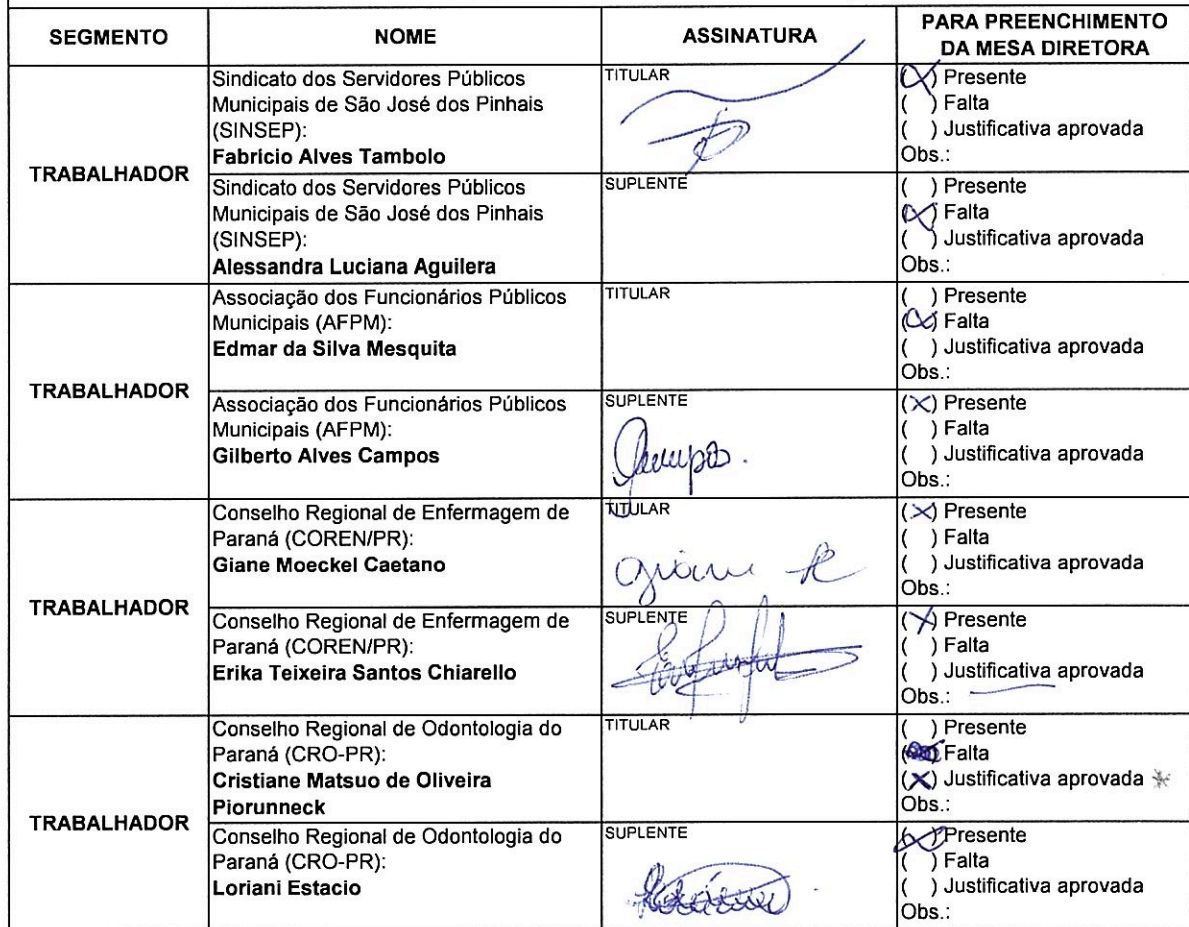 SEGMENTO
NOME
ASSINATURA
PARA PREENCHIMENTO
DA MESA DIRETORA
TRABALHADOR
Sindicato dos Servidores Públicos
Municipais de São José dos Pinhais
(SINSEP):
Fabrício Alves Tambolo
TITULAR
(X) Presente
( ) Falta
( ) Justificativa aprovada
Obs.:
Sindicato dos Servidores Públicos
Municipais de São José dos Pinhais
(SINSEP):
Alessandra Luciana Aguilera
SUPLENTE
( ) Presente
(X) Falta
( ) Justificativa aprovada
Obs.:
TRABALHADOR
Associação dos Funcionários Públicos
Municipais (AFPM):
Edmar da Silva Mesquita
TITULAR
( ) Presente
(X) Falta
( ) Justificativa aprovada
Obs.:
Associação dos Funcionários Públicos
Municipais (AFPM):
Gilberto Alves Campos
SUPLENTE
(X) Presente
( ) Falta
( ) Justificativa aprovada
Obs.:
TRABALHADOR
Conselho Regional de Enfermagem de
Paraná (COREN/PR):
Giane Moeckel Caetano
TITULAR
(X) Presente
( ) Falta
( ) Justificativa aprovada
Obs.:
Conselho Regional de Enfermagem de
Paraná (COREN/PR):
Erika Teixeira Santos Chiarello
SUPLENTE
(X) Presente
( ) Falta
( ) Justificativa aprovada
Obs.:
TRABALHADOR
Conselho Regional de Odontologia do
Paraná (CRO-PR):
Cristiane Matsuo de Oliveira
Piorunneck
TITULAR
( ) Presente
( ) Falta
(X) Justificativa aprovada *
Obs.:
Conselho Regional de Odontologia do
Paraná (CRO-PR):
Loriani Estacio
SUPLENTE
(X) Presente
( ) Falta
( ) Justificativa aprovada
Obs.: